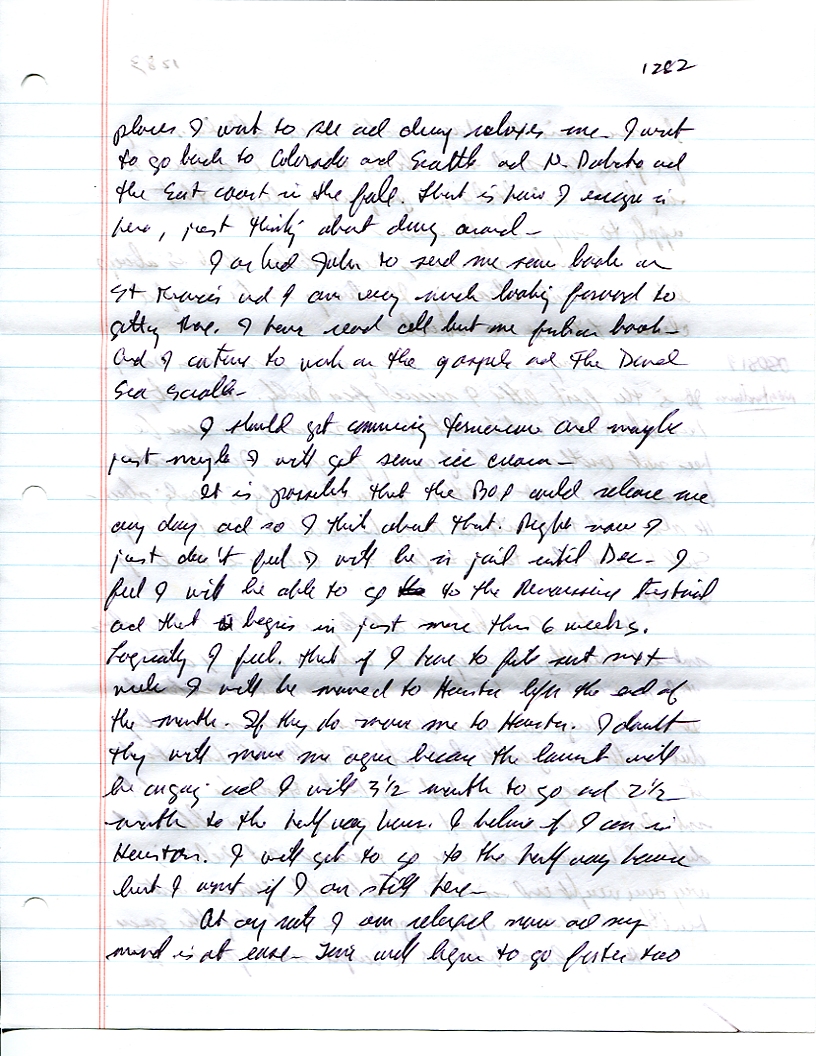 1282
places I want to see and doing relaxes me. I want
to go back to Colorado and Seattle and N. Dakota and
the East coast in the fall. That is how I escape in
here, just thinking about doing around -
I asked John to send me some book on
St Francis and I am very much looking forward to
getting those. I have read all but one fiction book -
And I continue to work on the gospels and The Dead
Sea Scrolls -
I should get commissary tomorrow and maybe
just maybe I will get some ice cream -
It is possible that the BOP could release me
any day and so I think about that. Right now I
just don't feel I will be in jail until Dec - I
feel I will be able to go to the Renaissance Festival
and that begins in just more than 6 weeks.
Logically I feel. that if I have to file suit next
week I will be moved to Houston before the end of
the month. If they do move me to Houston. I doubt
they will move me again because the lawsuit will
be ongoing and I will 3 1/2 month to go and 2 1/2
month to the half way house. I believe if I am in
Houston. I will get to go to the half way house
but I wont if I am still here -
At any rate I am relaxed now and my
mind is at ease - Time will begin to go faster too